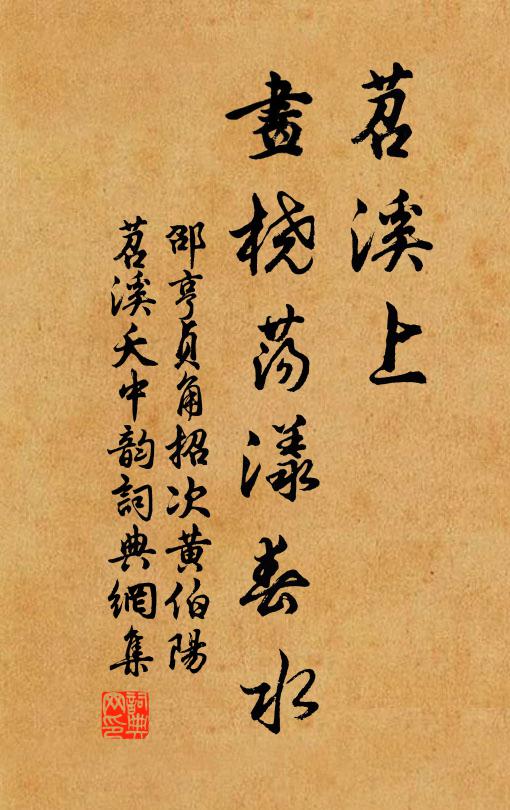 苕溪上
畫橈蕩漾春水
邵亨貞角招次黄伯陽
苕溪夭中韵詞典網集
詞典网印